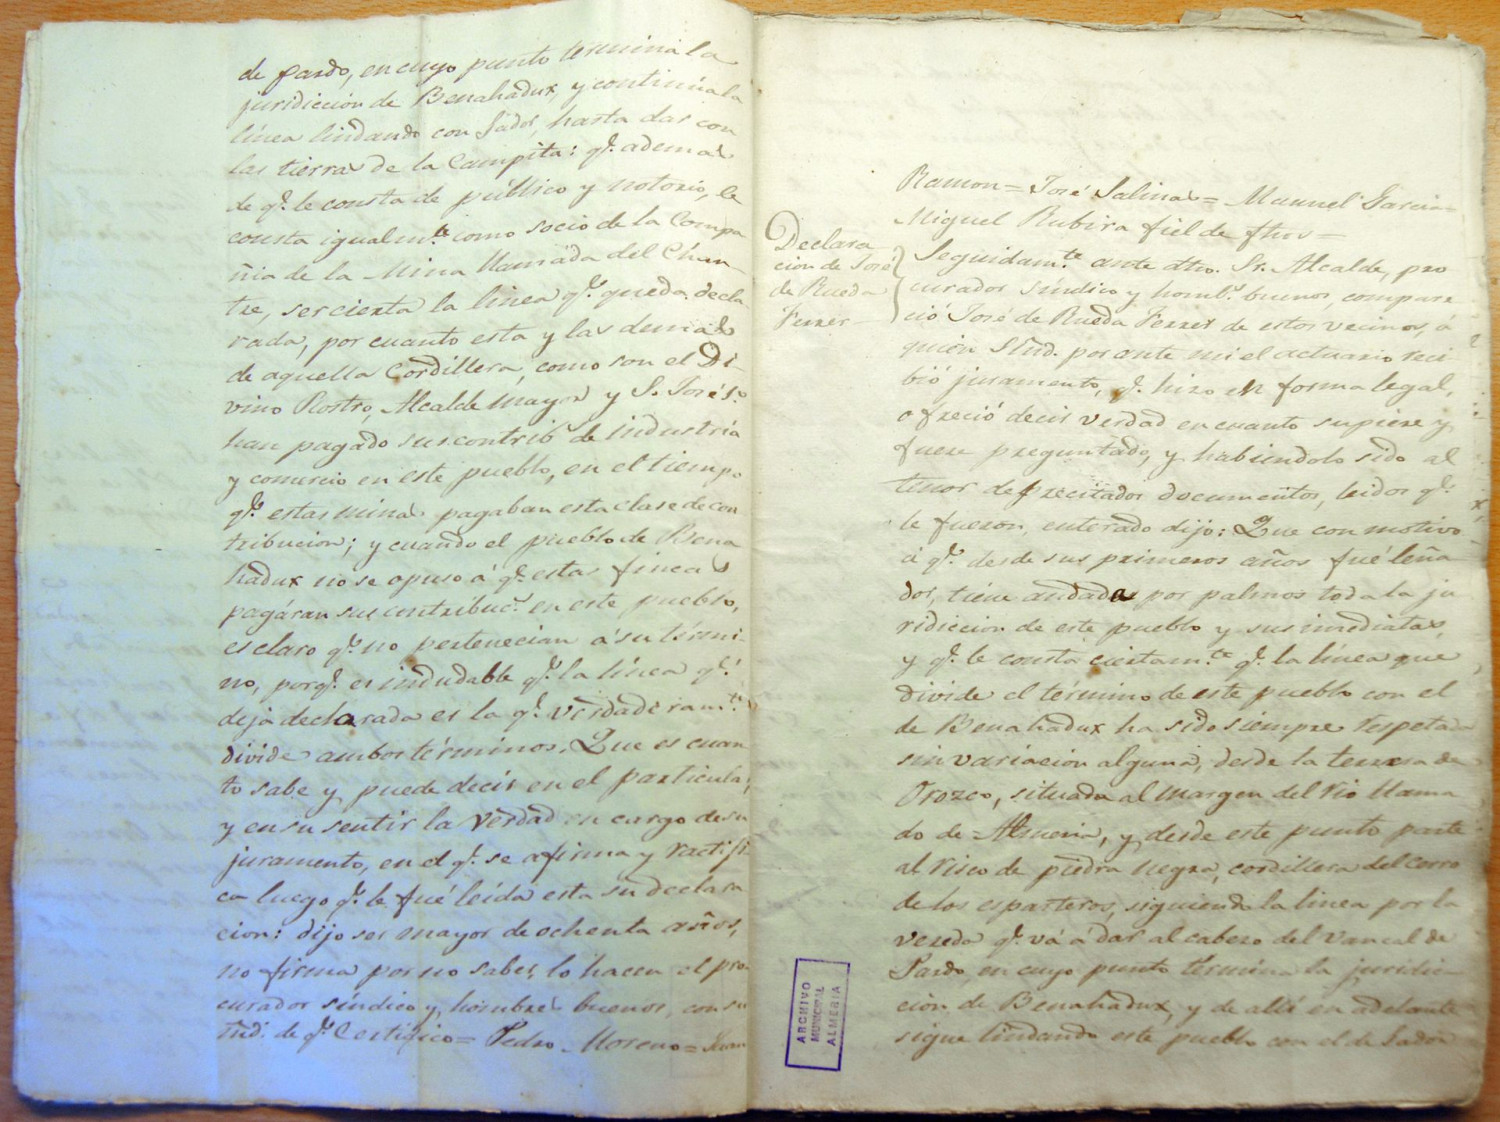 de Pardo, en cuyo punto termina la
juridiccion de Benahadux, y continúa la
línea lindando con Gádor, hasta dar con
las tierras de la Campita: q.e ademas
de q.e le consta de público y notorio, le
consta igualm.te como socio de la Compa
ñia de la Mina llamada del Chan-
tre, ser cierta la linea q.e queda decla
rada, por cuanto esta y las demas
de aquella Cordillera, como son el Di-
vino Rostro, Alcalde mayor y S. José 1.o
han pagado sus contrib.s de industria
y comercio en este pueblo, en el tiempo
q.e estas minas pagaban esta clase de con
tribucion; y cuando el pueblo de Bena
hadux no se opuso á q.e estas fincas
pagáran sus contribuc.s en este pueblo,
es claro q.e no pertenecian á su térmi-
no, porq.e es indudable q.e la línea q.e
deja declarada es la q.e verdaderam.te
divide ambos términos. Que es cuan
to sabe y puede decir en el particular,
y en su sentir la verdad en cargo de su
juramento, en el q.e se afirma y ractifi
ca luego q.e le fué leída esta su declara
cion: dijo ser mayor de ochenta años,
no firma por no saber, lo hacen el pro
curador síndico y hombres buenos, con su
md. de q.e Certifico= Pedro Moreno= Juan
Ramon= José Salinas= Manuel Garcia=
Miguel Rubira fiel de fhos=
Declara
cion de José
de Rueda
Ferrer
Seguidam.te ante dho. Sr. Alcalde, pro
curador síndico y homb.s buenos, compare
ció José de Rueda Ferrer de estos vecinos, á
quien Smd. por ante mi el actuario reci-
bió juramento, q.e hizo en forma legal,
ofreció decir verdad en cuanto supiere y
fuere preguntado, y habiendolo sido al
tenor de precitados documentos, leidos q.e
le fueron, enterado dijo: Que con motivo
á q.e desde sus primeros años fué leña
dor, tiene andada por palmos toda la ju
ridiccion de este pueblo y sus inmediatas,
y q.e le consta ciertam.te q.e la línea que
divide el término de este pueblo con el
de Benahadux ha sido siempre respetada
sin variacion alguna, desde la terrera de
Orozco, situada al margen del rio llama
do de Almeria, y desde este punto parte
al risco de piedra negra, cordillera del cerro
de los esparteros, siguiendo la linea por la
vereda q.e vá á dar al cabezo del vancal de
Pardo, en cuyo punto termina la juridic-
cion de Benahadux, y de allí en adelante
sigue lindando este pueblo con el de Gador
ARCHIVO
MUNICIPAL
ALMERIA